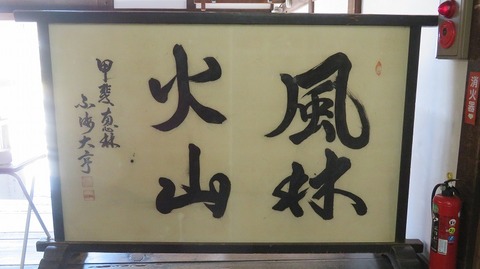 風林
火山
甲斐恵林
不海大亨
消火器